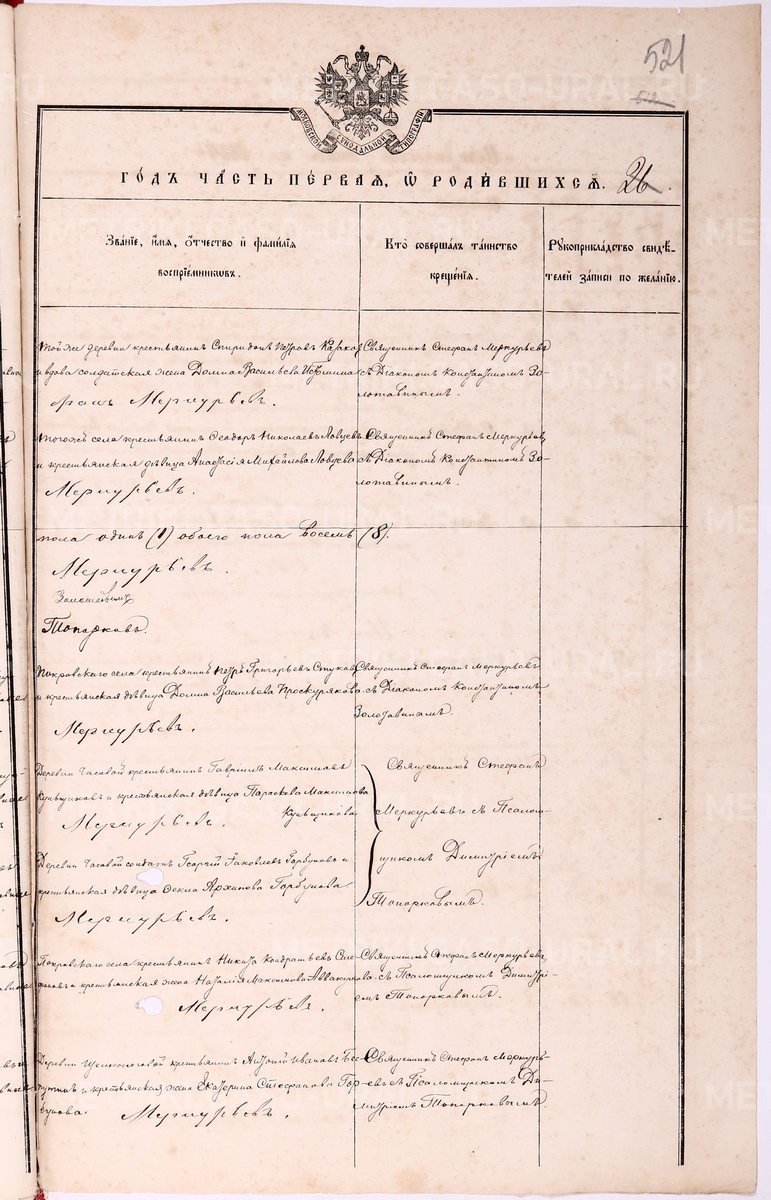 521
512
МОСКОВСКОЙ СѴНОДАЛЬНОЙ ТИПОГРАФІИ
ГОДЪ ЧАСТЬ ПЕРВАЯ, Ѿ РОДИВШИХСЯ. 26.
Званіе, имя, отчество и фамилія воспріемниковъ.
Кто совершалъ таинство крещенія.
Рукоприкладство свидѣтелей записи по желанію.
Той же деревни крестьянинъ Спиридонъ Петровъ Казаков
и вдова солдатская жена Домна Васильева
Меркурьевъ.
Священникъ Стефанъ Меркурьевъ
съ Діакономъ Константиномъ Зо-
лотавинымъ.
Того же села крестьянинъ Ѳеодоръ Николаевъ Ловцевъ
и крестьянская дѣвица Анастасія Михайлова Ловцева
Меркурьевъ.
Священникъ Стефанъ Меркурьевъ
съ Діакономъ Константиномъ Зо-
лотавинымъ.
пола одинъ (1) обоего пола восемь (8).
Меркурьевъ.
Топорковъ.
Покровскаго села крестьянинъ Петръ Григорьевъ Стуков
и крестьянская дѣвица Домна Васильева Проскурякова
Меркурьевъ.
Священникъ Стефанъ Меркурьевъ
съ Діакономъ Константиномъ
Золотавинымъ.
Деревни Часовой крестьянинъ Гавріилъ Максимовъ
Кувщиковъ и крестьянская дѣвица Параскева Максимова
Кувщикова
Меркурьевъ.
Деревни Часовой солдатъ Георгій Іаковлевъ Горбуновъ и
крестьянская дѣвица Ѳекла Архипова Горбунова
Меркурьевъ.
Священникъ Стефанъ
Меркурьевъ съ Псалом-
щикомъ Димитріемъ
Топорковымъ.
Покровскаго села крестьянинъ Никита Кондратьевъ
и крестьянская жена Наталія Максимова Аввакумова
Меркурьевъ.
Священникъ Стефанъ Меркурьевъ
съ Псаломщикомъ Димитрі-
емъ Топорковымъ.
Деревни крестьянинъ Антоній Ивановъ
и крестьянская жена Екатерина Стефанова Гор-
бунова.
Меркурьевъ.
Священникъ Стефанъ Меркурь-
евъ съ Псаломщикомъ Ди-
митріемъ Топорковымъ.